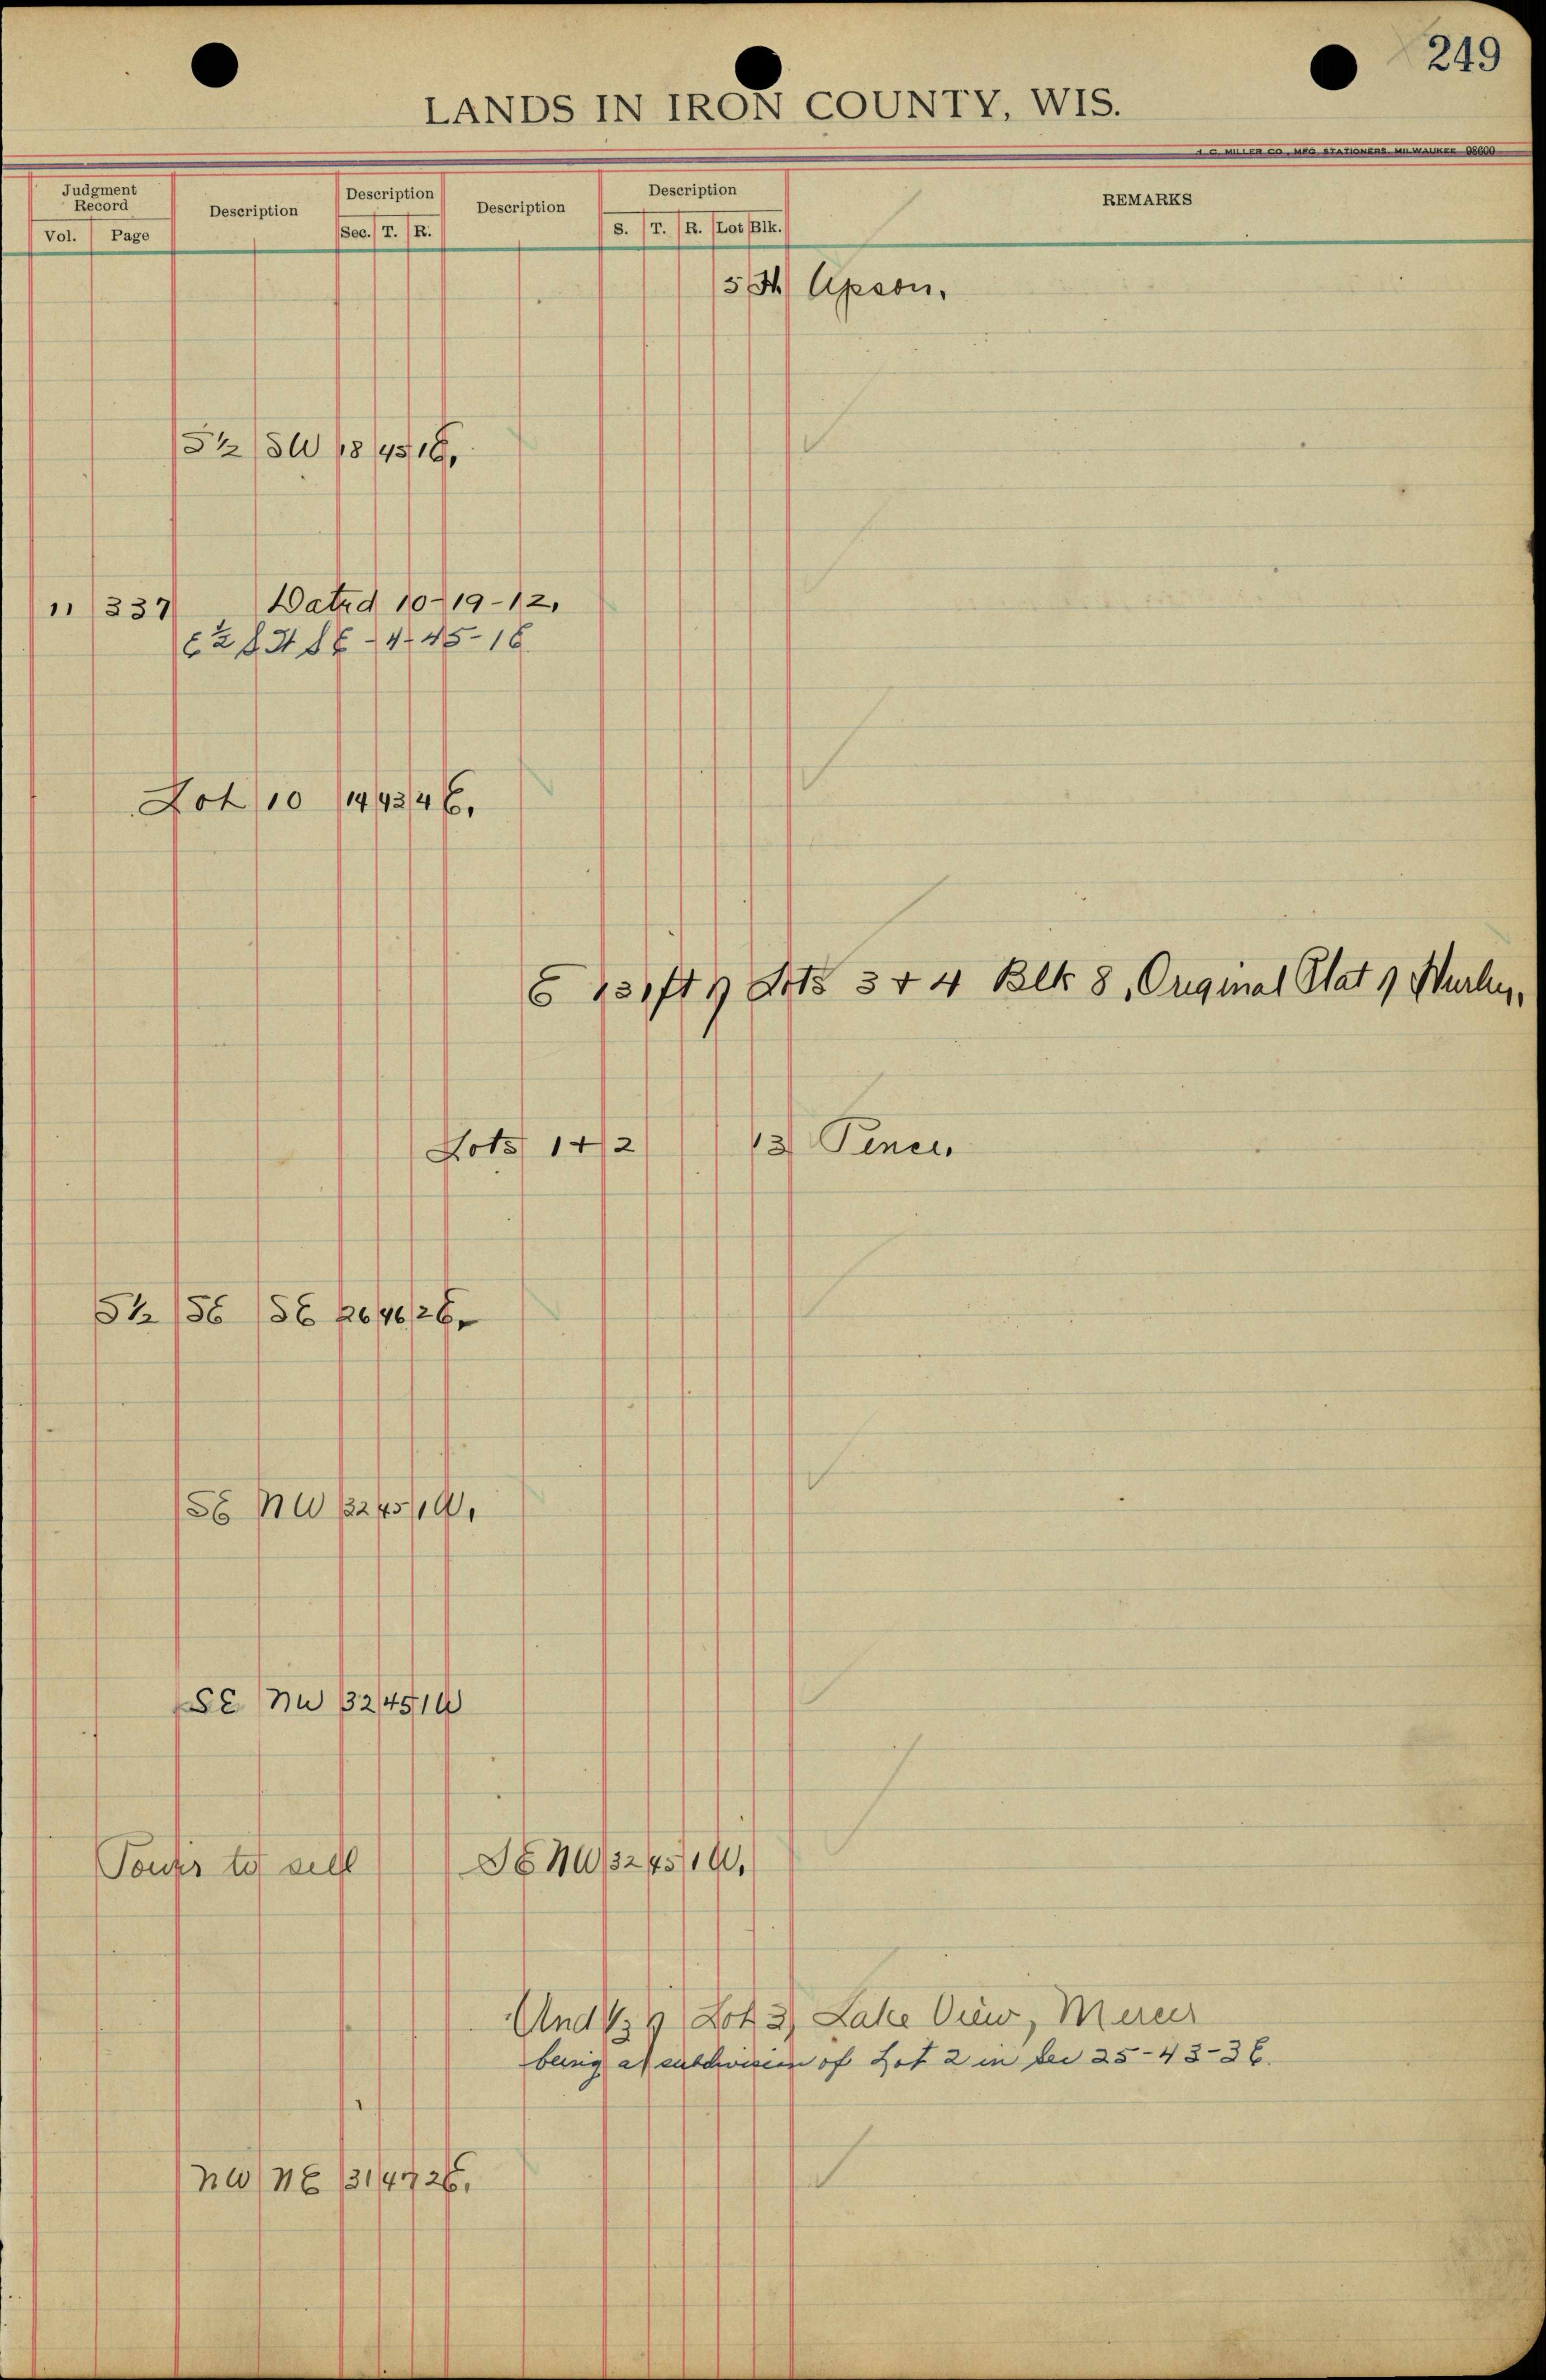 249
LANDS IN IRON COUNTY, WIS.
H. C. MILLER CO., MFG. STATIONERS, MILWAUKEE 98600
Judgment Record Description Description Description Description REMARKS
Vol. Page Sec. T. R. S. T. R. Lot Blk.
5 Upson.
S½ SW 18 45 1E.
11 337 Dated 10-19-12.
E½ SE - 4-45-1E
Lot 10 14 43 4E.
E 131 ft of Lots 3 + 4 Blk 8, Original Plat of Hurley.
Lots 1 + 2 13 Pence.
S½ SE SE 26 46 2E.
SE NW 32 45 1W.
SE NW 32 45 1W
Power to sell SE NW 32 45 1W.
Und ⅓ of Lot 3, Lake View, Mercer
being a subdivision of Lot 2 in Sec 25-43-3E.
NW NE 31 47 2E.